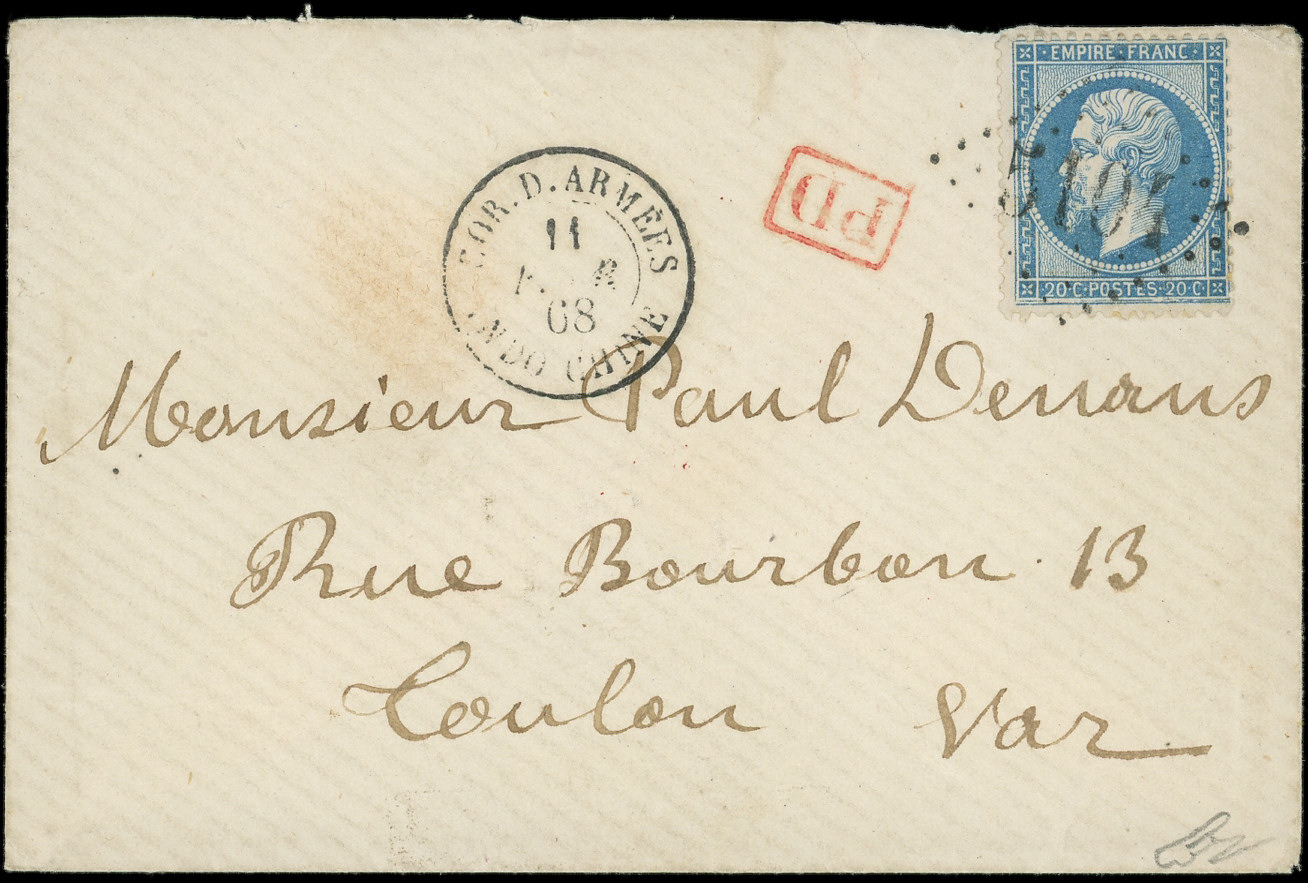 EMPIRE · FRANC
5104
20·C·POSTES·20·C
PD
COR. D. ARMÉES
11
68
INDO CHINE
Monsieur Paul Denans
Rue Bourbon 13
Toulon Var